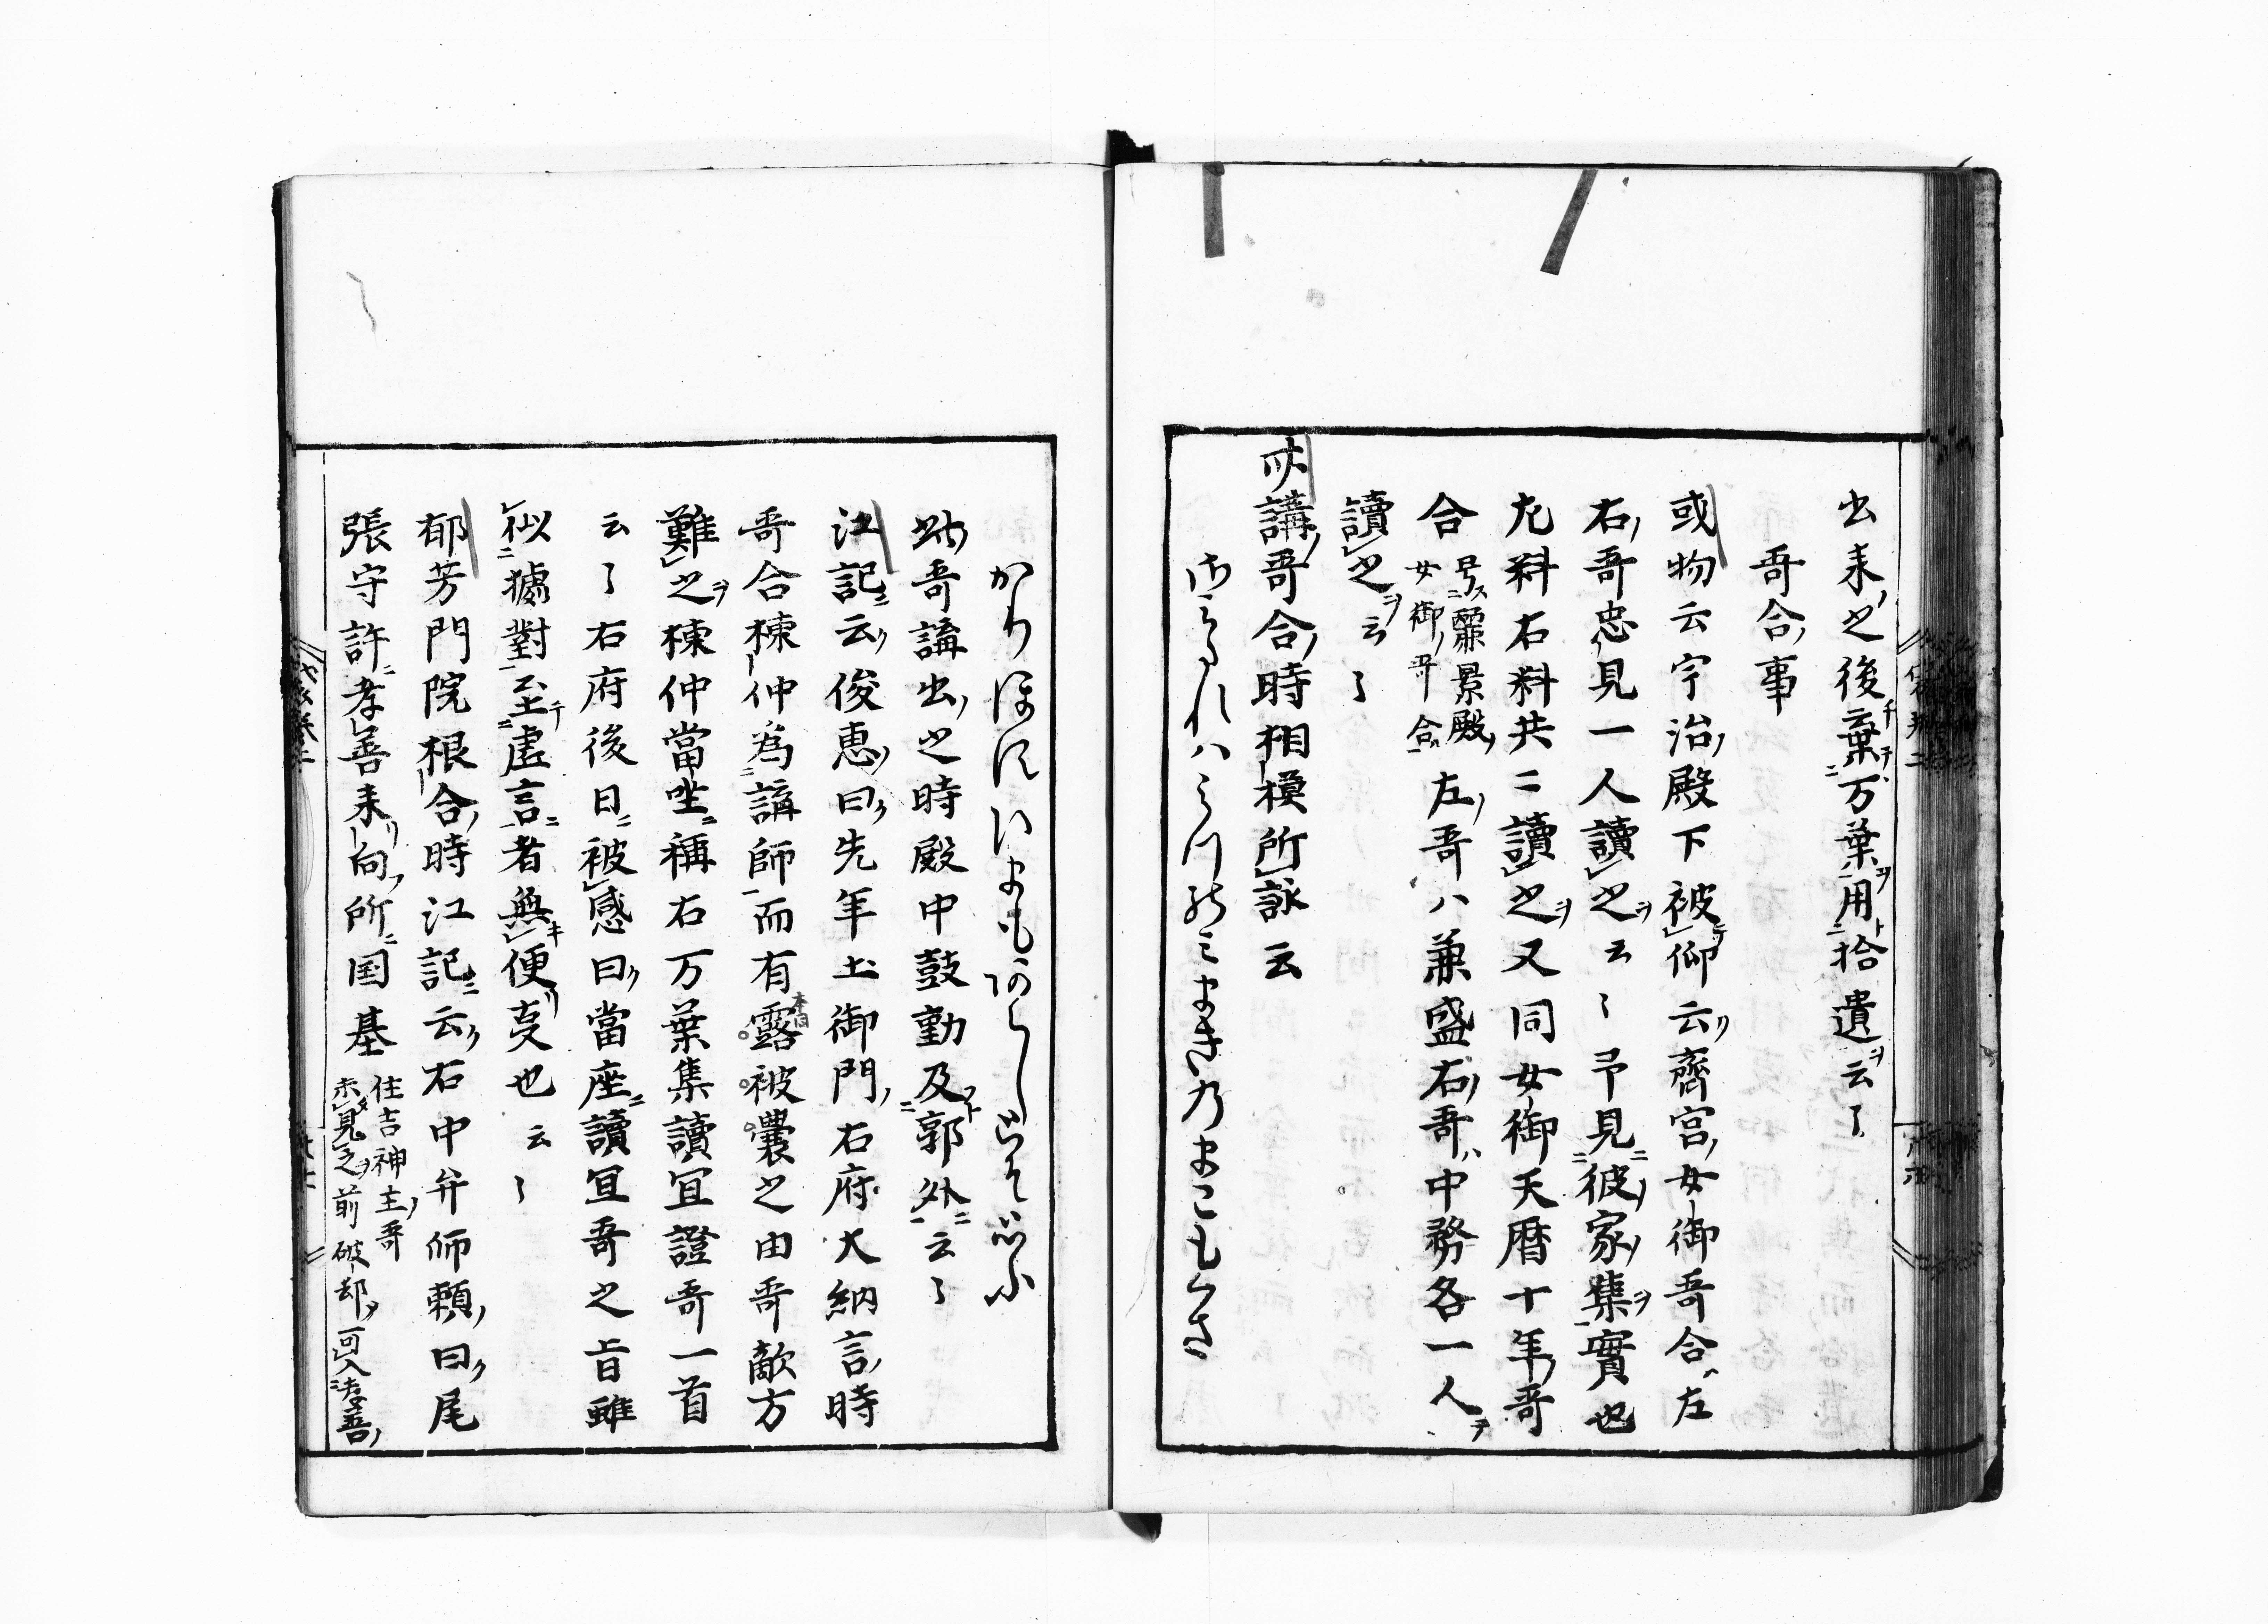 出来之後棄万葉用拾遺云々
哥合事
或物云宇治殿下被仰云齊宮女御哥合左
右哥忠見一人讀之云々予見彼家集實也
左料右料共ニ讀之又同女御天暦十年哥
合号麗景殿女御哥合左哥ハ兼盛右哥ハ中務各一人
讀之云々
講哥合時相模所詠云
さみたれハみつのみまきのまこもくさ
かりほすひまもあらしとそ思ふ
此哥講出之時殿中鼓動及郭外云々
江記云俊惠曰先年土御門右府大納言時
哥合棟仲為講師而有露被嚢之由哥敵方
難之棟仲當坐稱右万葉集讀宜證哥一首
云々右府後日被感曰當座讀宜哥之旨雖
似據對至虚言者無便支也云々
郁芳門院根合時江記云右中弁師頼曰尾
張守許孝善来向所国基住吉神主哥未見之前破却可入孝善